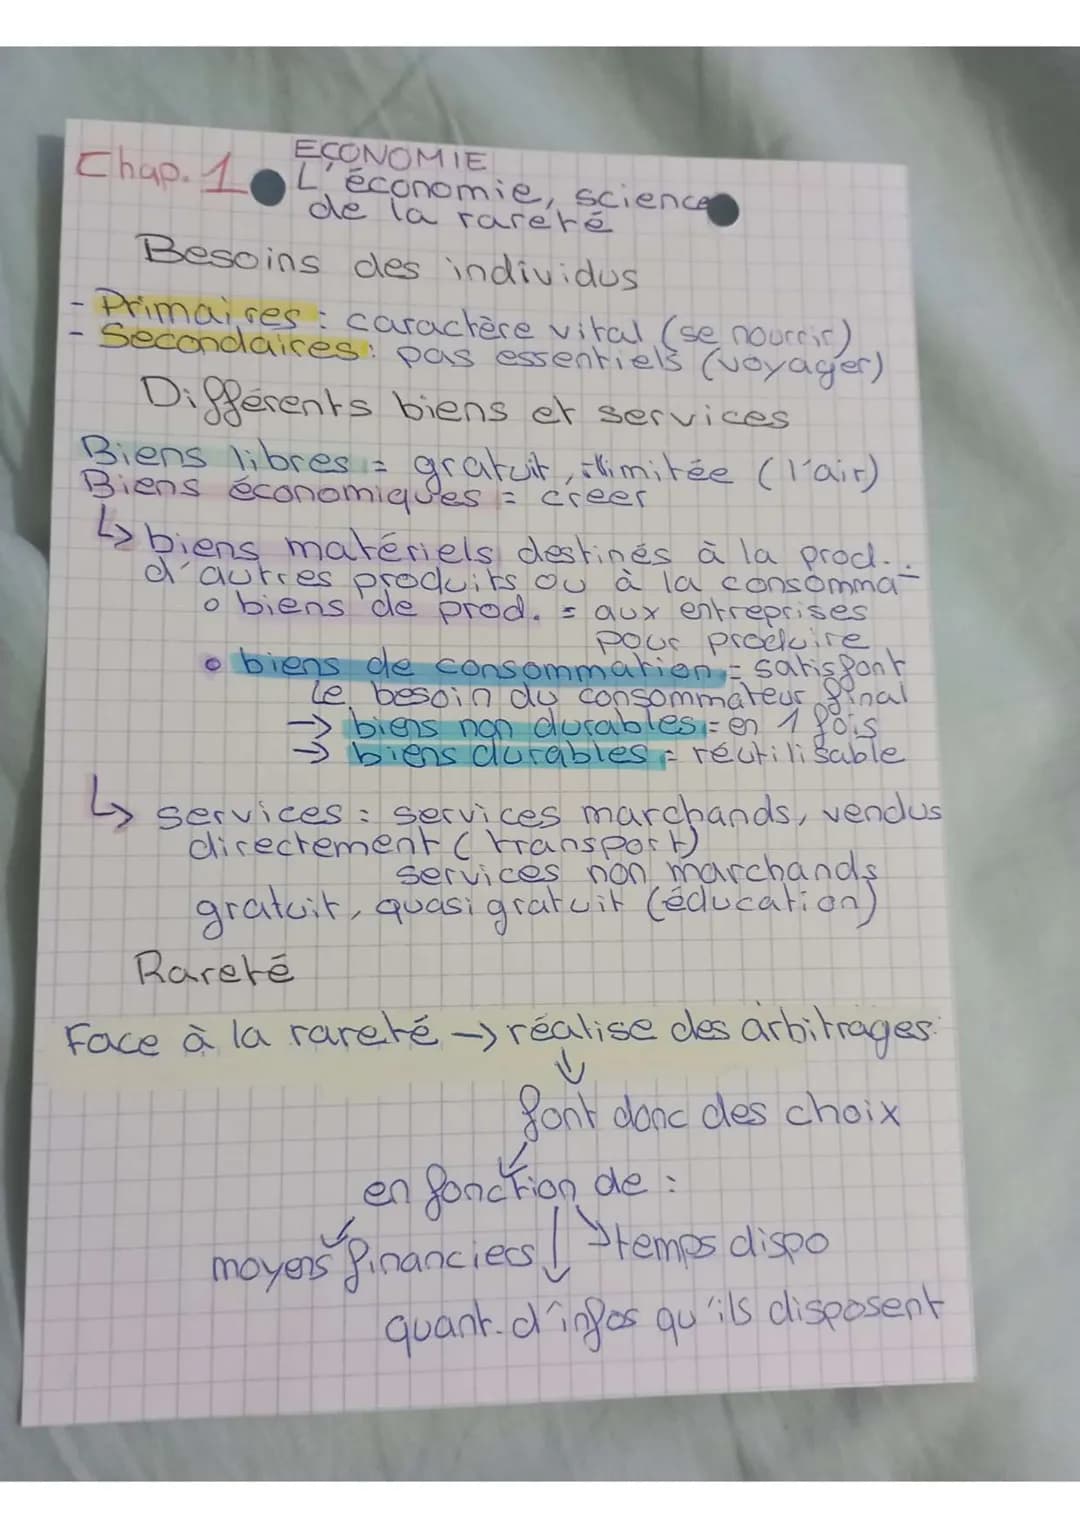 ECONOMIE
Chap. 1 L'économie, science
de la rareté
Besoins des individus
- Primaires : caractère vital (se nourrir)
- Secondaires : pas essentiels (voyager)
Différents biens et services
Biens libres = gratuit, illimitée (l'air)
Biens économiques = creer
↳ biens matériels destinés à la prod.
d'autres produits ou à la consomma-
o biens de prod. = aux entreprises
pour produire
• biens de consommation = satisfont
le besoin du consommateur final
→ biens non durables = en 1 fois
→ biens durables = réutilisable
↳ services : services marchands, vendus
directement (transport)
services non marchands
gratuit, quasi gratuit (éducation)
Rareté
Face à la rareté → réalise des arbitrages
↓
font donc des choix
↙
en fonction de :
↙ ↓ ↘
moyens financiers temps dispo
quant. d'infos qu'ils disposent